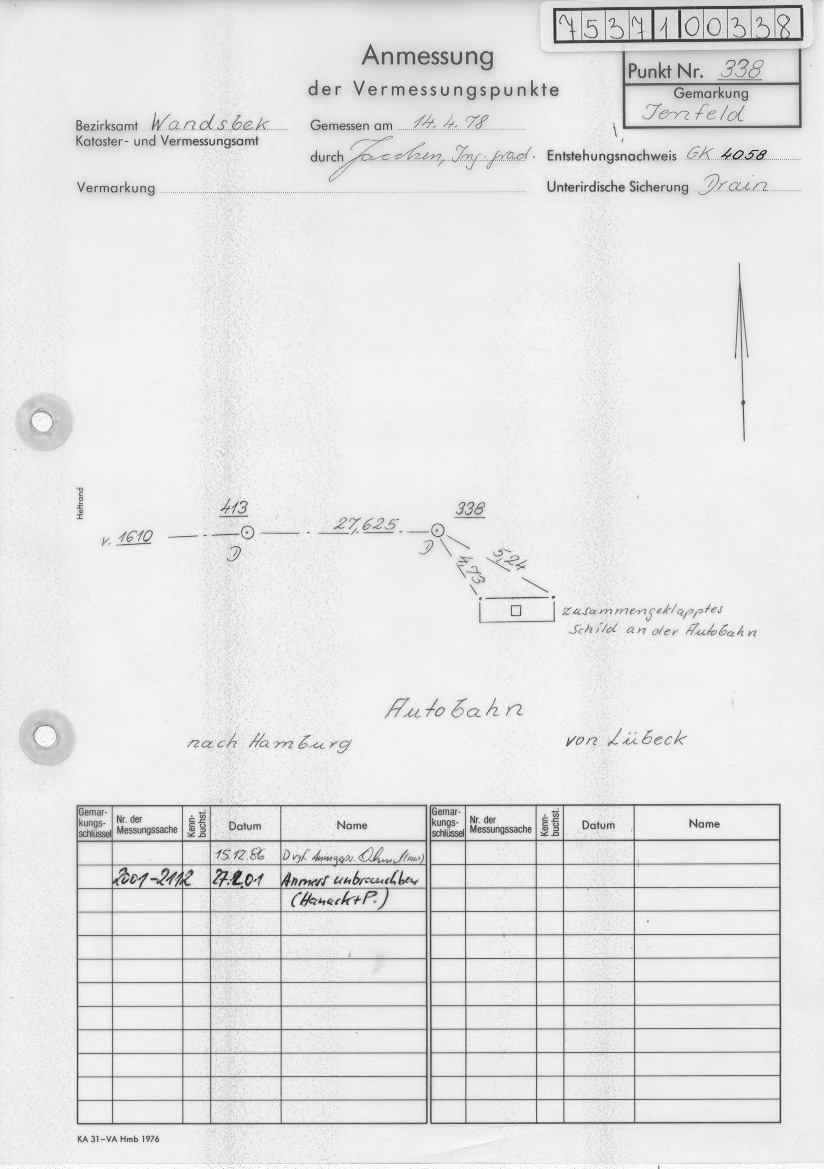 7537100338
Anmessung
der Vermessungspunkte
Punkt Nr. 338
Gemarkung
Jenfeld
Bezirksamt Wandsbek
Kataster- und Vermessungsamt
Gemessen am 14.4.78
durch Ing. grad.
Entstehungsnachweis GK 4058
Vermarkung
Unterirdische Sicherung Drain
Heftrand
v. 1610
413
D
27,625
338
D
4,73
5,24
zusammengeklapptes
Schild an der Autobahn
Autobahn
nach Hamburg
von Lübeck
Gemar-kungs-schlüssel Nr. der Messungssache Kenn-buchst. Datum Name Gemar-kungs-schlüssel Nr. der Messungssache Kenn-buchst. Datum Name
15.12.86 D vgf.
2001-2112 27.2.01 Anmess unbrauchbar
(Hanack+P.)
KA 31–VA Hmb 1976